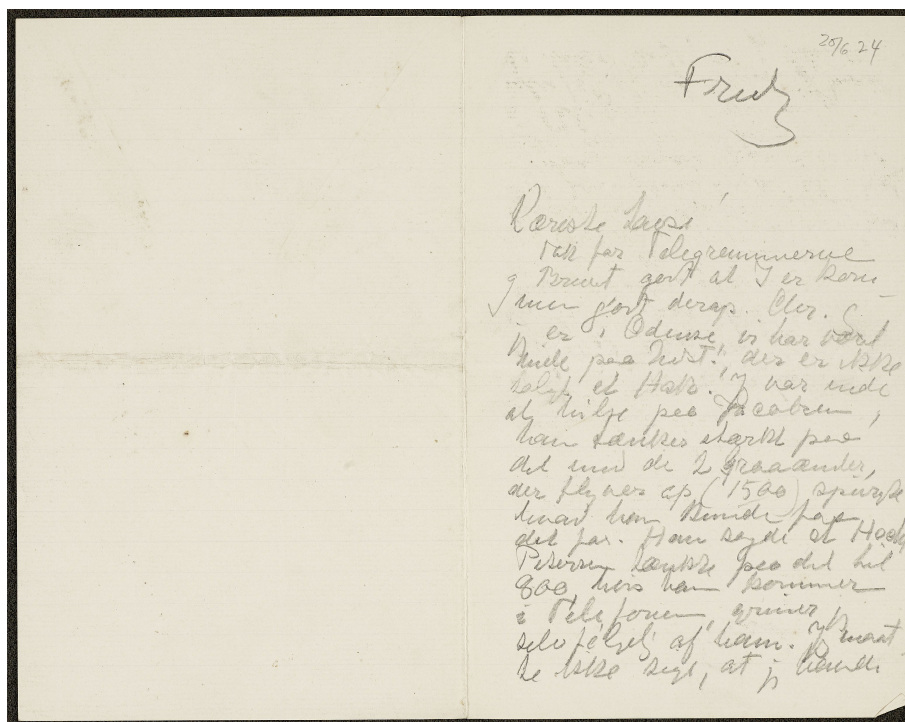 20/6 24
Fredz
Kæreste Lugge!
Tak for Telegrammerne
g Brevet godt at I er kom
men godt derop. Chr. &
jg er i Odense, vi har været
inde paa Udst., der er ikke
solgt et Hak. Jg var inde
at hilse paa Jacobsen,
han tænker stærkt paa
det med de 2 Graaænder,
der flyver op (1500) spurgte
hvad han kunde faa
det for. Han sagde at Høst
Petersen tænkte paa det til
800, hvis han kommer
i Telefonen, griner jg
selvfølgelig af ham. Jg maat
te ikke sige, at jg kendte